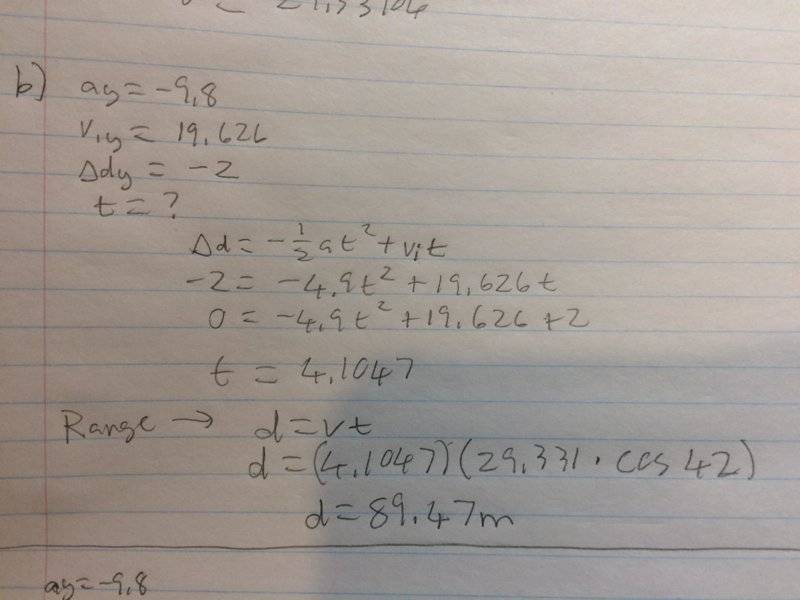 b) ay = -9,8
v,y = 19,626
Δdy = -2
t = ?
Δd = -1/2 at² + vit
-2 = -4,9t² + 19,626t
0 = -4,9t² + 19,626 + 2
t = 4,1047
Range → d = vt
d = (4,1047)(29,331 · cos 42)
d = 89.47m
ay = -9,8